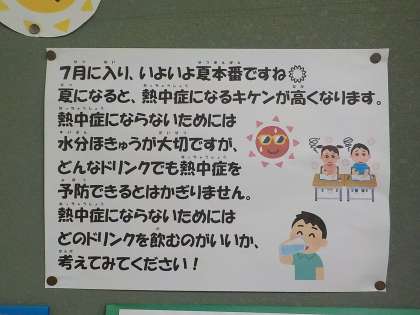 7月に入り、いよいよ夏本番ですね
夏になると、熱中症になるキケンが高くなります。
熱中症にならないためには
水分ほきゅうが大切ですが、
どんなドリンクでも熱中症を
予防できるとはかぎりません。
熱中症にならないためには
どのドリンクを飲むのがいいか、
考えてみてください!